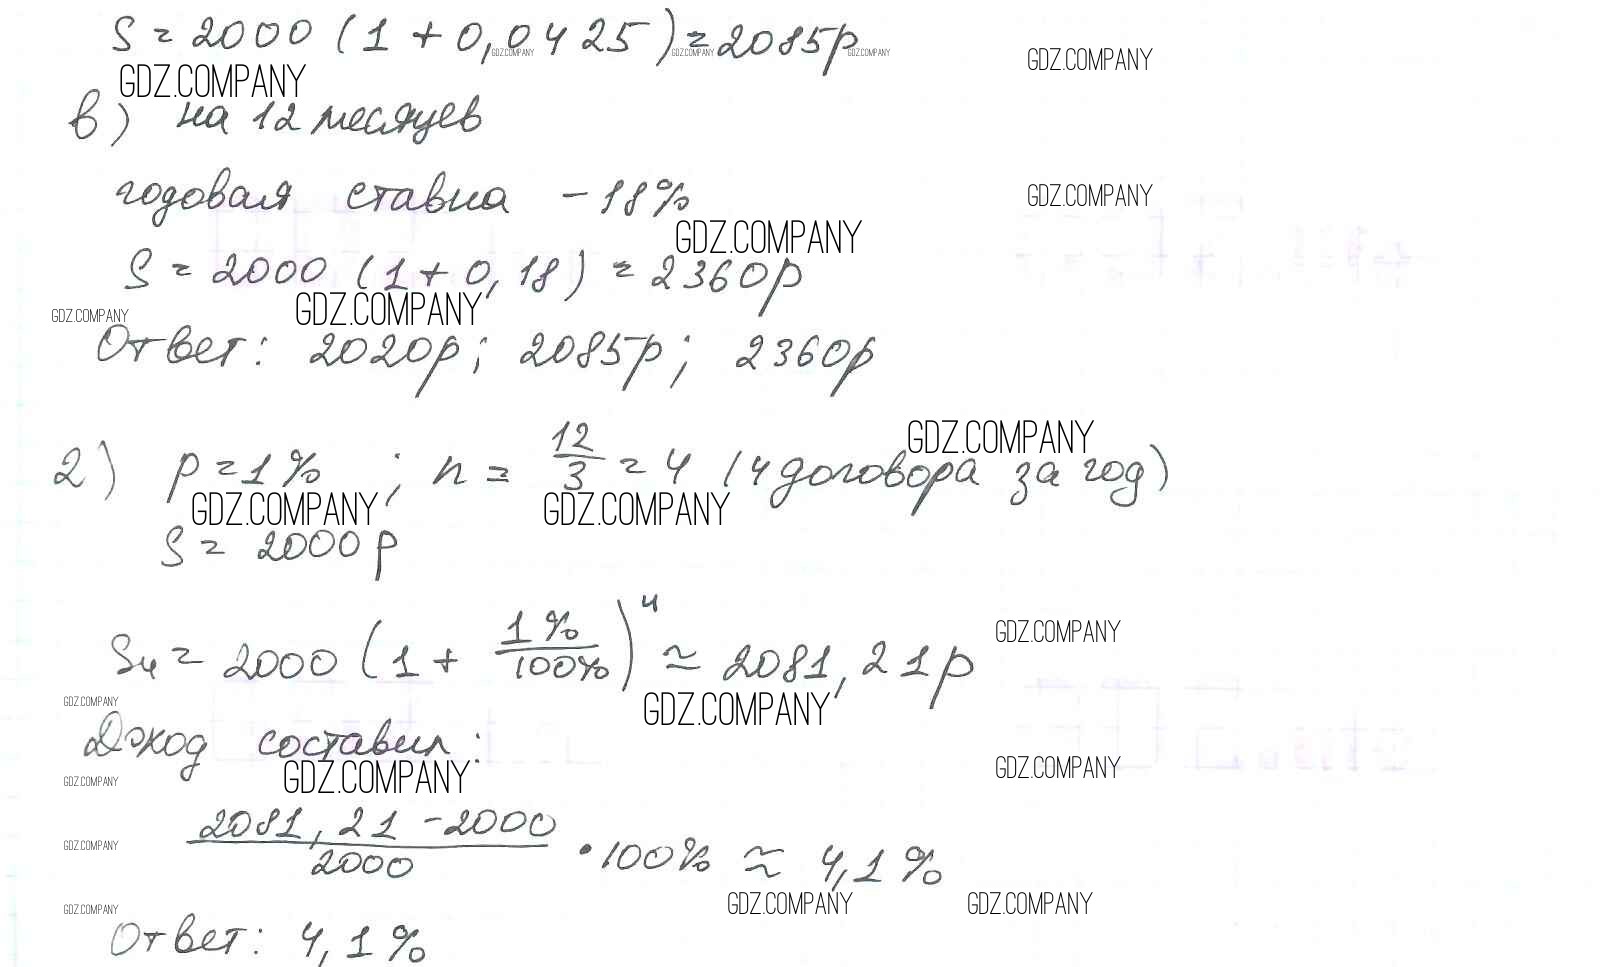 S = 2000 (1 + 0,0425) = 2085р
GDZ.COMPANY GDZ.COMPANY GDZ.COMPANY GDZ.COMPANY
GDZ.COMPANY
в) на 12 месяцев
годовая ставка - 18%
GDZ.COMPANY
GDZ.COMPANY
S = 2000 (1 + 0,18) = 2360р
GDZ.COMPANY GDZ.COMPANY
Ответ: 2020р; 2085р; 2360р
GDZ.COMPANY
2) p = 1% ; n = 12/3 = 4 (4 договора за год)
GDZ.COMPANY GDZ.COMPANY
S = 2000р
S4 = 2000 (1 + 1%/100%)^4 ≈ 2081,21р
GDZ.COMPANY
GDZ.COMPANY GDZ.COMPANY
Доход составил:
GDZ.COMPANY GDZ.COMPANY GDZ.COMPANY
2081,21 - 2000 / 2000 · 100% ≈ 4,1%
GDZ.COMPANY
GDZ.COMPANY GDZ.COMPANY GDZ.COMPANY
Ответ: 4,1%